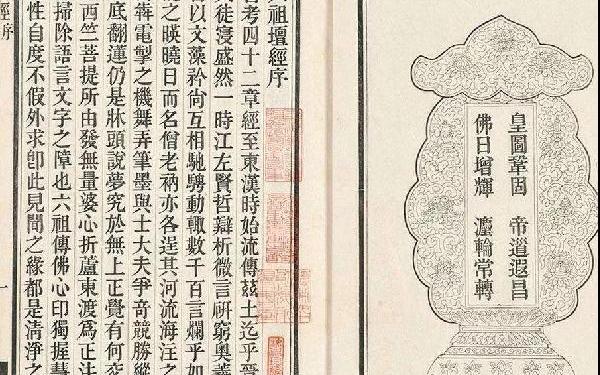 皇圖鞏固 帝道遐昌
佛日增輝 灋輪常轉
祖壇經序
考四十二章經至東漢時始流傳茲土迄乎晉
徒寖盛然一時江左賢哲辯析微言硏窮奧義
以文藻衿尙互相馳騁動輒數千百言爛乎如
之暎曉日而名僧老衲亦各逞其河流海注之
犇電掣之機舞弄筆墨與士大夫爭奇競勝縱
底翻運仍是牀頭說夢究於無上正覺有何
西竺菩提所由發無量婆心折蘆東渡爲正法
掃除語言文字之障也六祖傳佛心印獨握
性自度不假外求卽此見聞之緣都是清淨之
經序
一